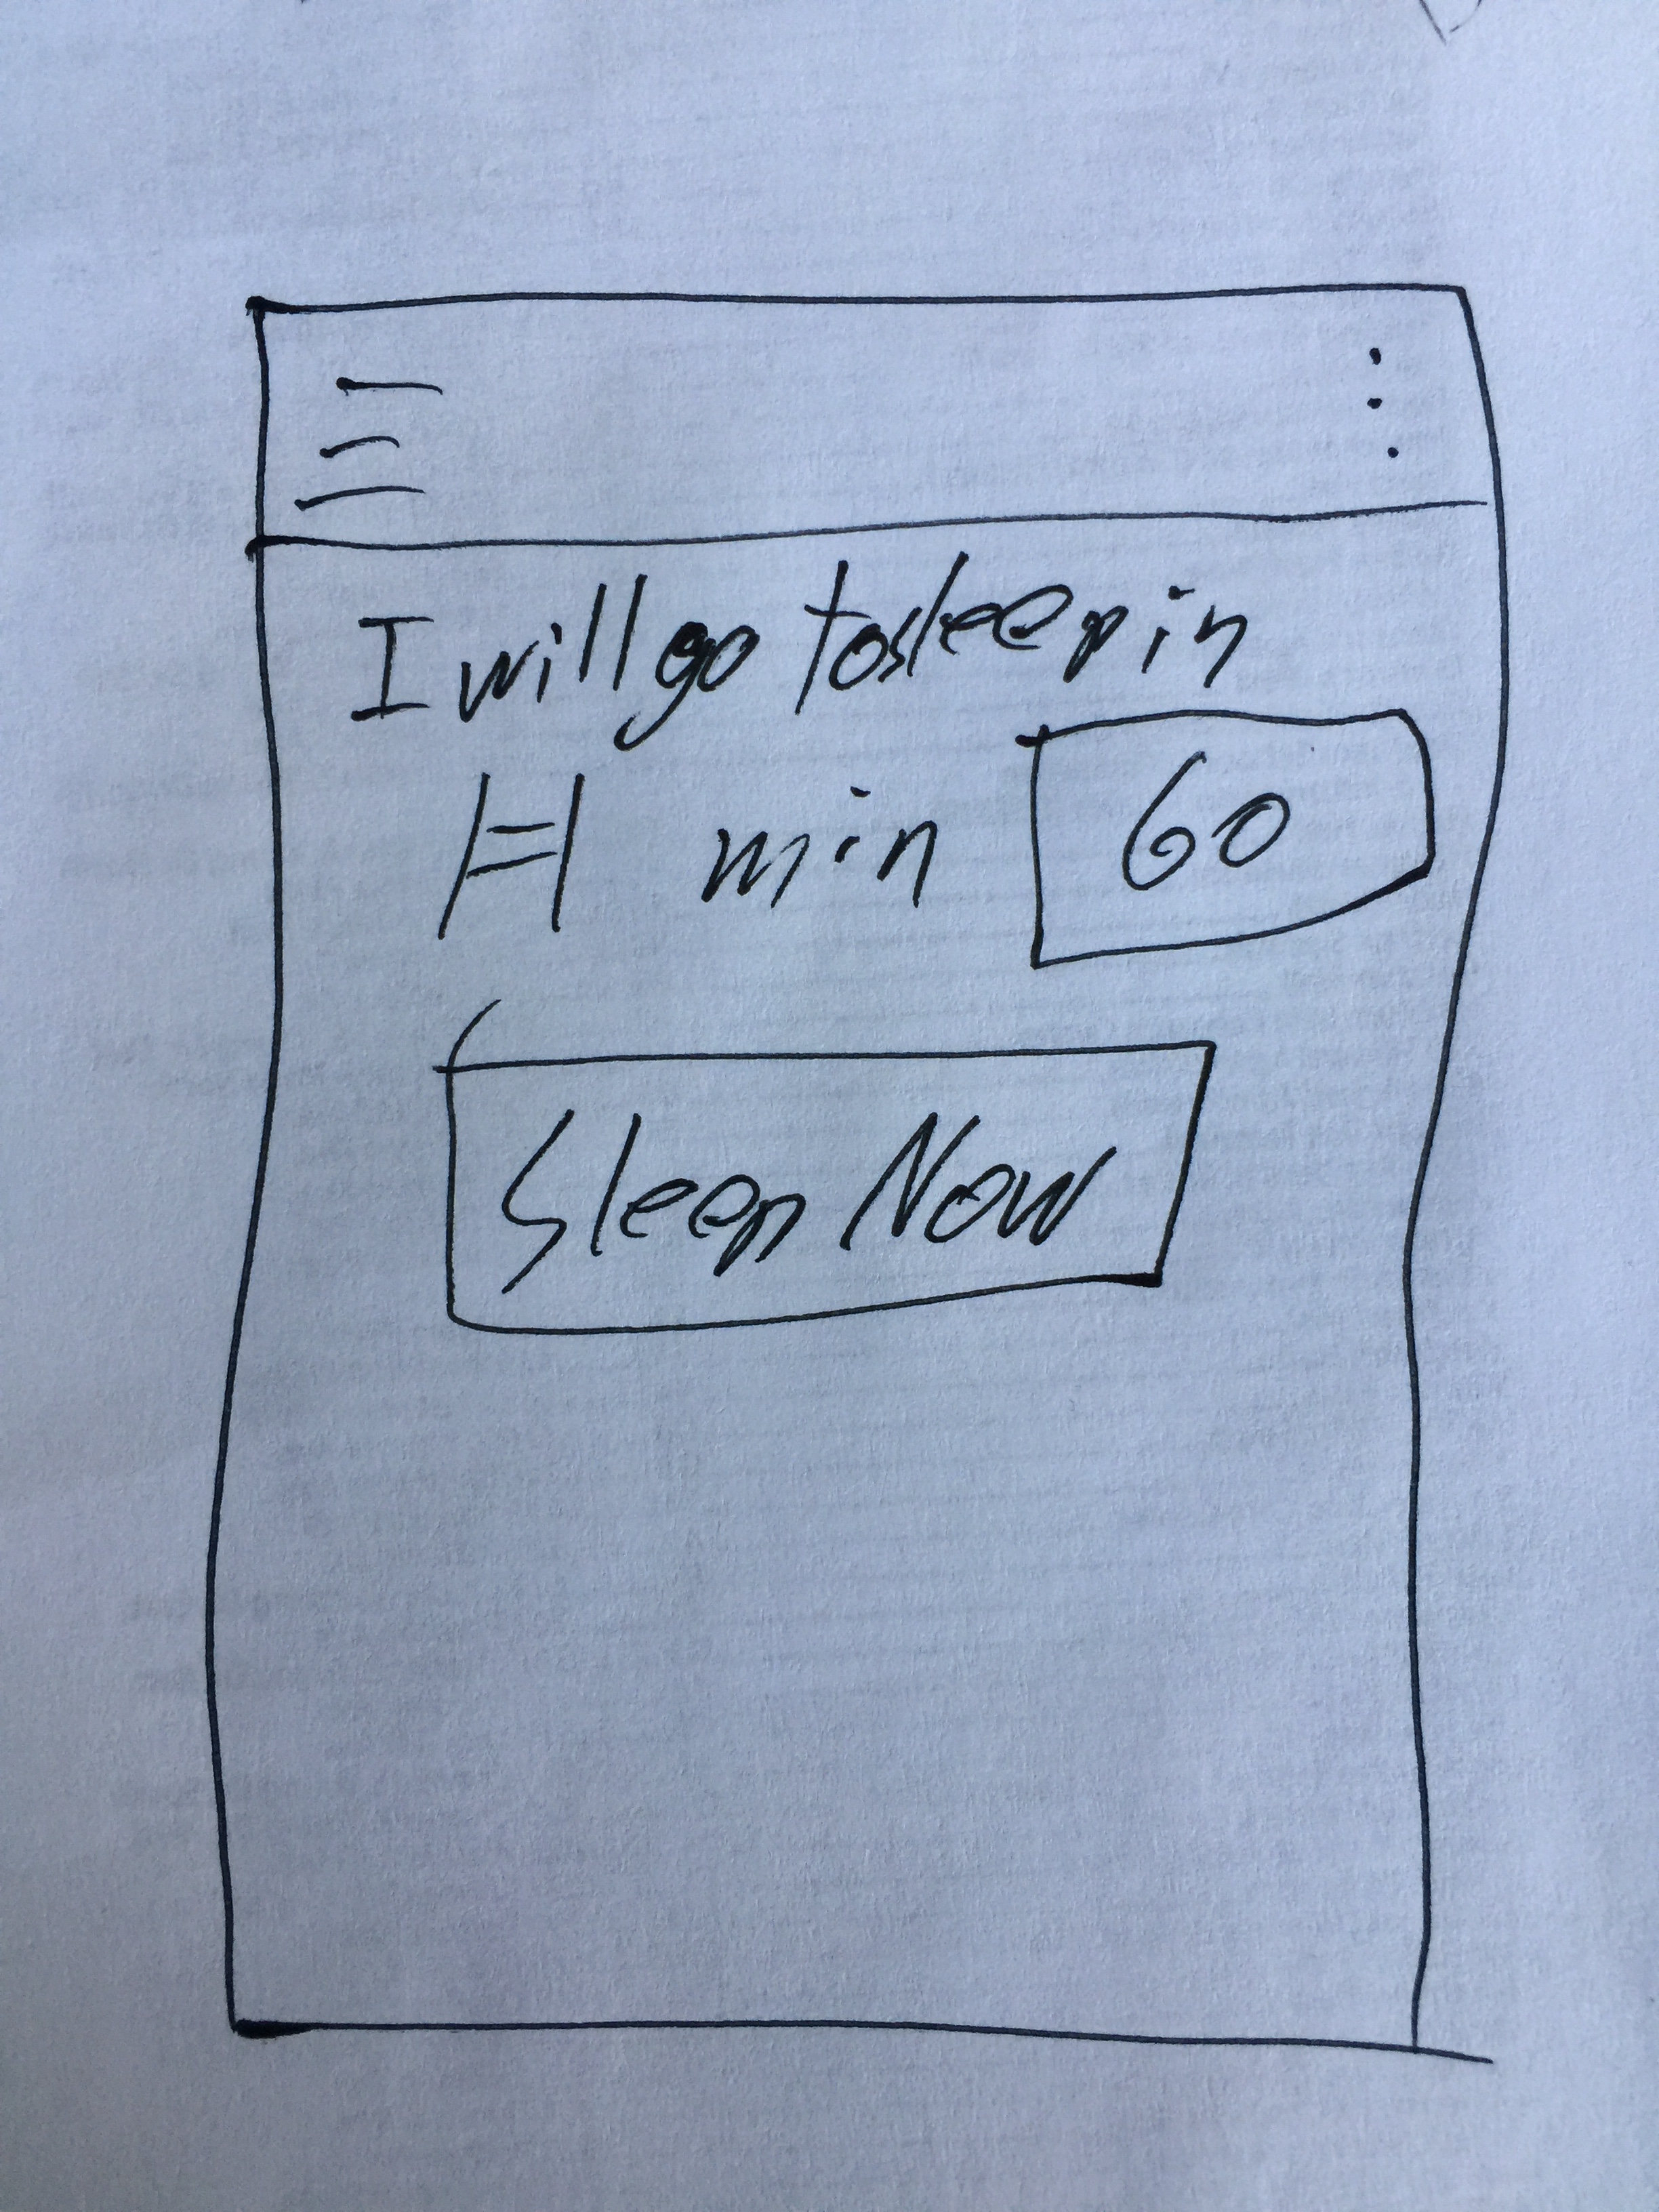 I will go to sleep in
min 60
Sleep Now